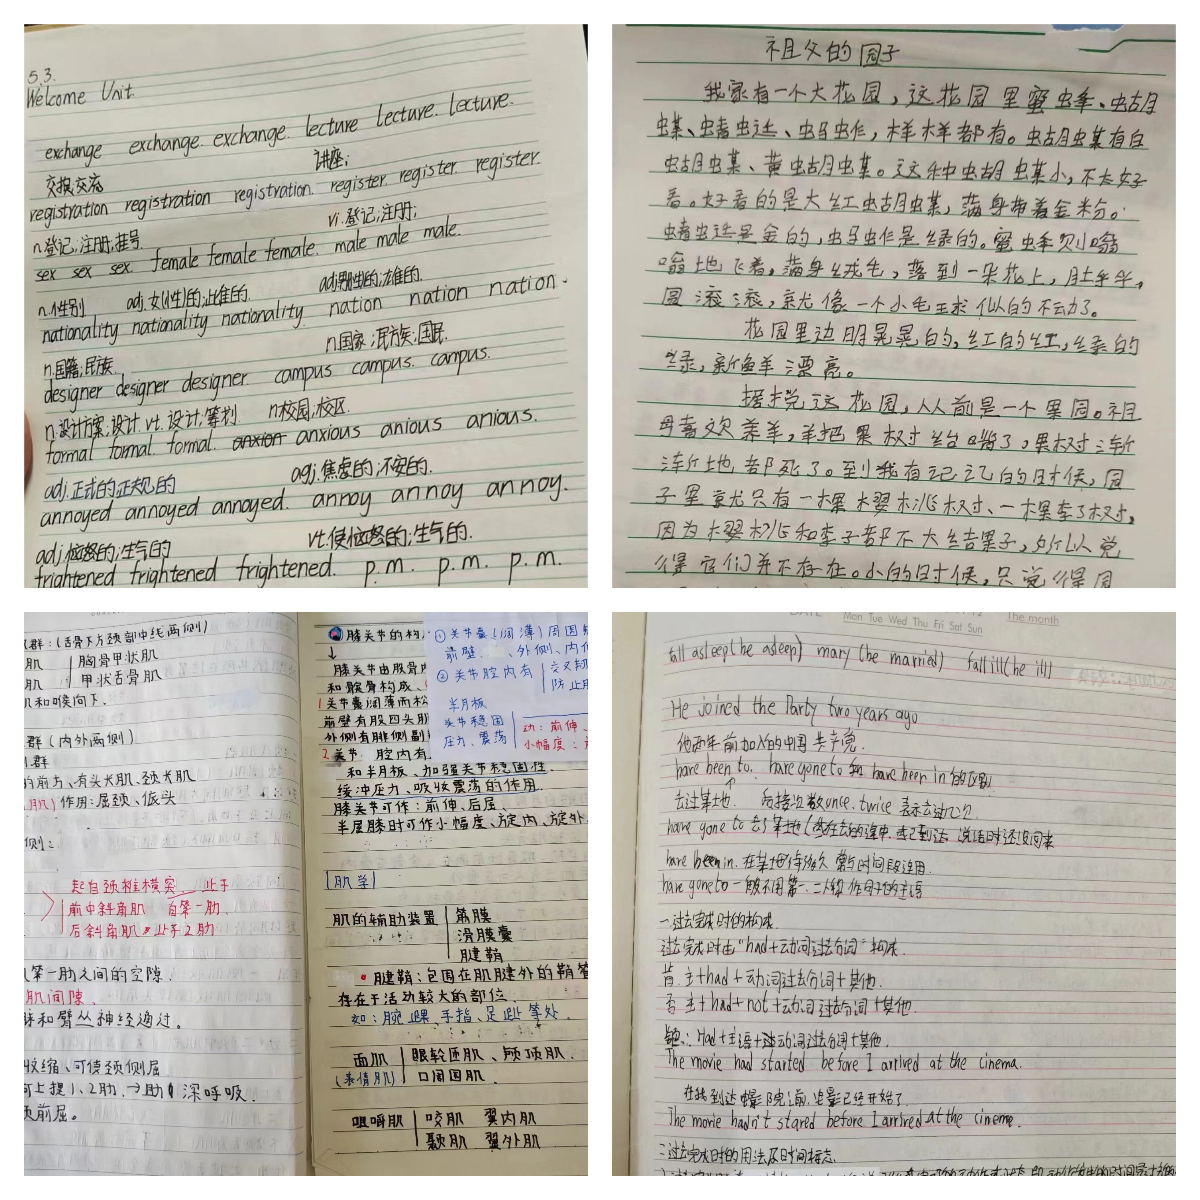 5.3.
Welcome Unit.
exchange exchange. exchange. lecture lecture. lecture.
交换,交流 讲座;
registration registration registration. register. register. register.
n.登记;注册,挂号. vi.登记;注册;
sex sex sex. female female female. male male male.
n.性别 adj.女(性)的;雌性的. adj.男性的;雄性的.
nationality nationality nationality. nation nation nation.
n.国籍;民族. n.国家;民族;国民.
designer designer designer. campus campus. campus.
n.设计方案;设计 vt.设计;筹划 n校园;校区.
formal formal. formal. anxion anxious anious anious.
adj.正式的正规的 agj.焦虑的;不安的.
annoyed annoyed annoyed. annoy annoy annoy.
adj.恼怒的;生气的 vt.使恼怒的;生气的.
frightened frightened frightened. p.m. p.m. p.m.
祖父的园子
我家有一个大花园,这花园里蜜蜂、蝴
蝶、蜻蜓、蚂蚱,样样都有。蝴蝶有白
蝴蝶、黄蝴蝶。这种蝴蝶小,不太好
看。好看的是大红蝴蝶,满身带着金粉。
蜻蜓是金的,蚂蚱是绿的。蜜蜂则嗡
嗡地飞着,满身绒毛,落到一朵花上,胖乎乎,
圆滚滚,就像一个小毛球似的不动了。
花园里边明晃晃的,红的红,绿的
绿,新鲜漂亮。
据说这花园,从前是一个果园。祖
母喜欢养羊,羊把果树给啃了,果树渐
渐地都死了。到我有记忆的时候,园
子里就只有一棵樱桃树、一棵李子树,
因为樱桃和李子都不大结果子,所以说
得它们并不存在。小的时候,只说得园
群:(舌骨下方颈部中线两侧)
肌 胸骨甲状肌
肌 甲状舌骨肌
和喉向下.
群(内外两侧)
群
前方、有头大肌、颈大肌
肌)作用:屈颈、低头
侧:
起自颈椎横突 止于
前中斜角肌 自第一肋
后斜角肌 止于2肋
第一肋之间的空隙.
肌间隙.
和臂丛神经通过.
收缩、可使颈侧屈
上提1、2肋.→助 深呼吸.
前屈.
膝关节的构
↓
膝关节由股骨
和髌骨构成、
1关节囊阔薄而松
前壁有股四头肌
外侧有腓侧副
2关节. 腔内有
和半月板、加强关节稳固性.
缓冲压力、吸收震荡的作用.
膝关节可作:前伸、后屈.
半屈膝时可作小幅度、旋内、旋外
①关节囊(阔薄)周围
前壁、外侧、内
②关节腔内有 交叉韧
防止
半月板
关节稳固
压力、震荡
动:前伸、
小幅度:
[肌学]
肌的辅助装置 筋膜
滑膜囊
腱鞘
•腱鞘:包围在肌腱外的鞘管
存在于活动较大的部位.
如:腕、踝、手指、足趾等处.
面肌 眼轮匝肌、颊顶肌.
(表情肌) 口周围肌.
咀嚼肌 咬肌 翼内肌
颞肌 翼外肌
Mon Tue Wed Thu Fri Sat Sun The month
fall asleep(be asleep) mary (be married) fall ill(be ill)
He joined the Party two years ago
他两年前加入的中国共产党.
have been to. have gone to 和 have been in 的区别
去过某地. 后接次数once. twice 表示去过几次
have gone to 去了某地(或在去的途中,或已到达 说话时还没回来
have been in. 在某地待多久 常与时间段连用.
have gone to 一般不用第一.二人称作句子的主语
一过去完成时的构成.
过去完成时由"had+动词过去分词"构成.
肯.主+had+动词过去分词+其他.
否主+had+not+动词过去分词+其他.
疑: Had+主语+动词过去分词+其他.
The movie had started before I arrived at the cinema.
在我到达电影院之前,电影已经开始了.
The movie hadn't stared before I arrived at the cinema.
二过去完成时的用法及时间标志.